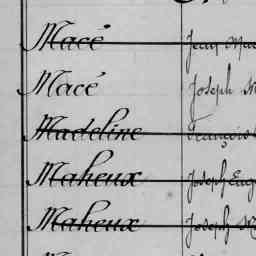 Macé Jean
Macé Joseph
Madeline François
Maheux Joseph Eug
Maheux Joseph